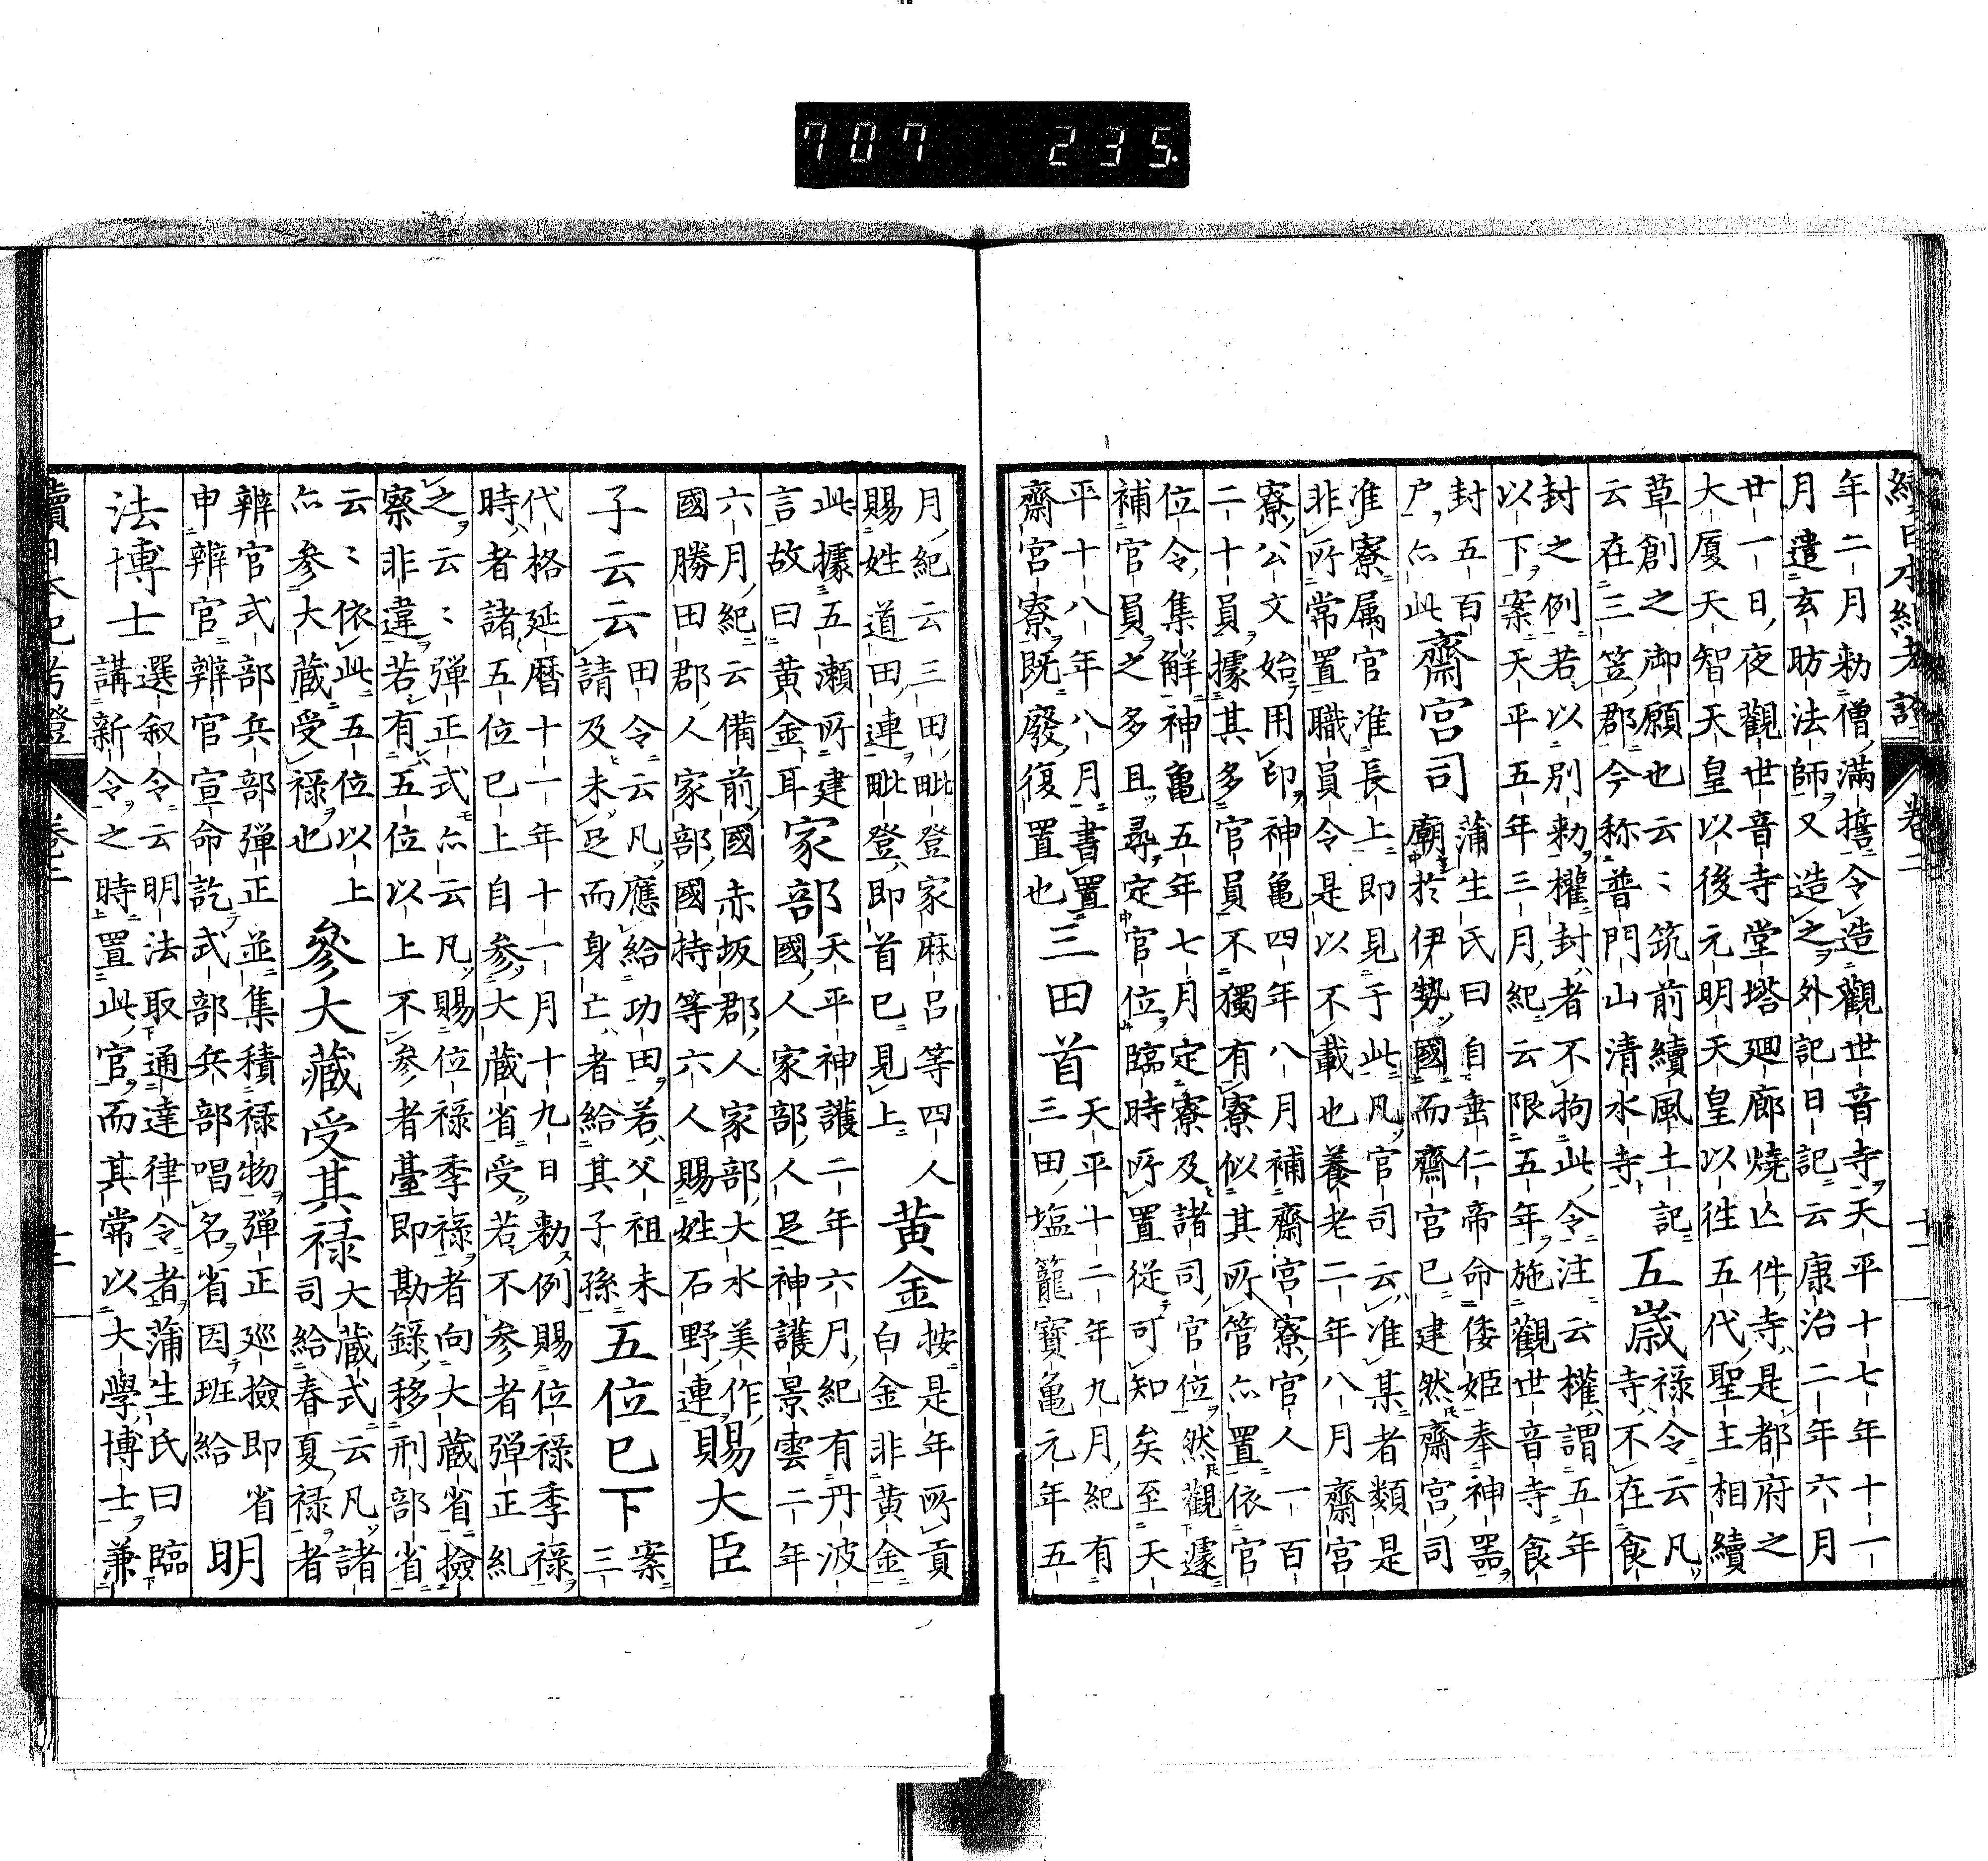 707 235.
續日本紀考證 卷二 十一
年二月勅僧滿誓令造觀世音寺天平十七年十一
月遣玄昉法師又造之外記日記云康治二年六月
廿一日夜觀世音寺堂塔廻廊燒亾件寺是都府之
大厦天智天皇以後元明天皇以徃五代聖主相續
草創之御願也云〻筑前續風土記
云在三笠郡今称普門山清水寺
五歳
祿令云凡
寺不在食
封之例若以別勅權封者不拘此令注云權謂五年
以下案天平五年三月紀云限五年施觀世音寺食
封五百
戸亦此
齋宮司
蒲生氏曰自垂仁帝命倭姬奉神噐
廟於伊勢國而齋宮已建然齋宮司
准寮属官准長上即見于此凡官司云准某者類是
非所常置職員令是以不載也養老二年八月齋宮
寮公文始用印神亀四年八月補齋宮寮官人一百
二十員據其多官員不獨有寮似其所管亦置依官
位令集解神亀五年七月定寮及諸司官位然觀遽
補官員之多且尋定官位臨時所置從可知矣至天
平十八年八月書置
齋宮寮既廢復置也
三田首
天平十二年九月紀有
三田塩籠寶亀元年五
月紀云三田毗登家麻呂等四人
賜姓道田連毗登即首已見上
黄金
按是年所貢
白金非黄金
此據五瀬所建
言故曰黄金耳
家部
天平神護二年六月紀有丹波
國人家部人足神護景雲二年
六月紀云備前國赤坂郡人家部大水美作
國勝田郡人家部國持等六人賜姓石野連
賜大臣
子云云
田令云凡應給功田若父祖未
請及未足而身亡者給其子孫
五位已下
案
三
代格延暦十一年十一月十九日勅例賜位祿季祿
時者諸五位已上自參大蔵省受若不參者弾正糺
之云〻弾正式亦云凡賜位祿季祿者向大蔵省撿
察非違若有五位以上不參者臺即勘錄移刑部省
云〻依此五位以上
亦參大蔵受祿也
參大藏受其祿
大蔵式云凡諸
司給春夏祿者
辨官式部兵部弾正並集積祿物弾正巡撿即省
申辨官辨官宣命訖式部兵部唱名省因班給
明
法博士
選叙令云明法取通達律令者蒲生氏曰臨
講新令之時置此官而其常以大學博士兼
續日本紀考證 卷二 十二